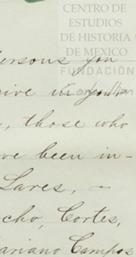 CENTRO DE
ESTUDIOS
DE HISTORIA
DE MEXICO
FUNDACIÓN
persons you
ive in your
, those who
ve been in-
Lares,
cho, Cortes,
ariano Campos